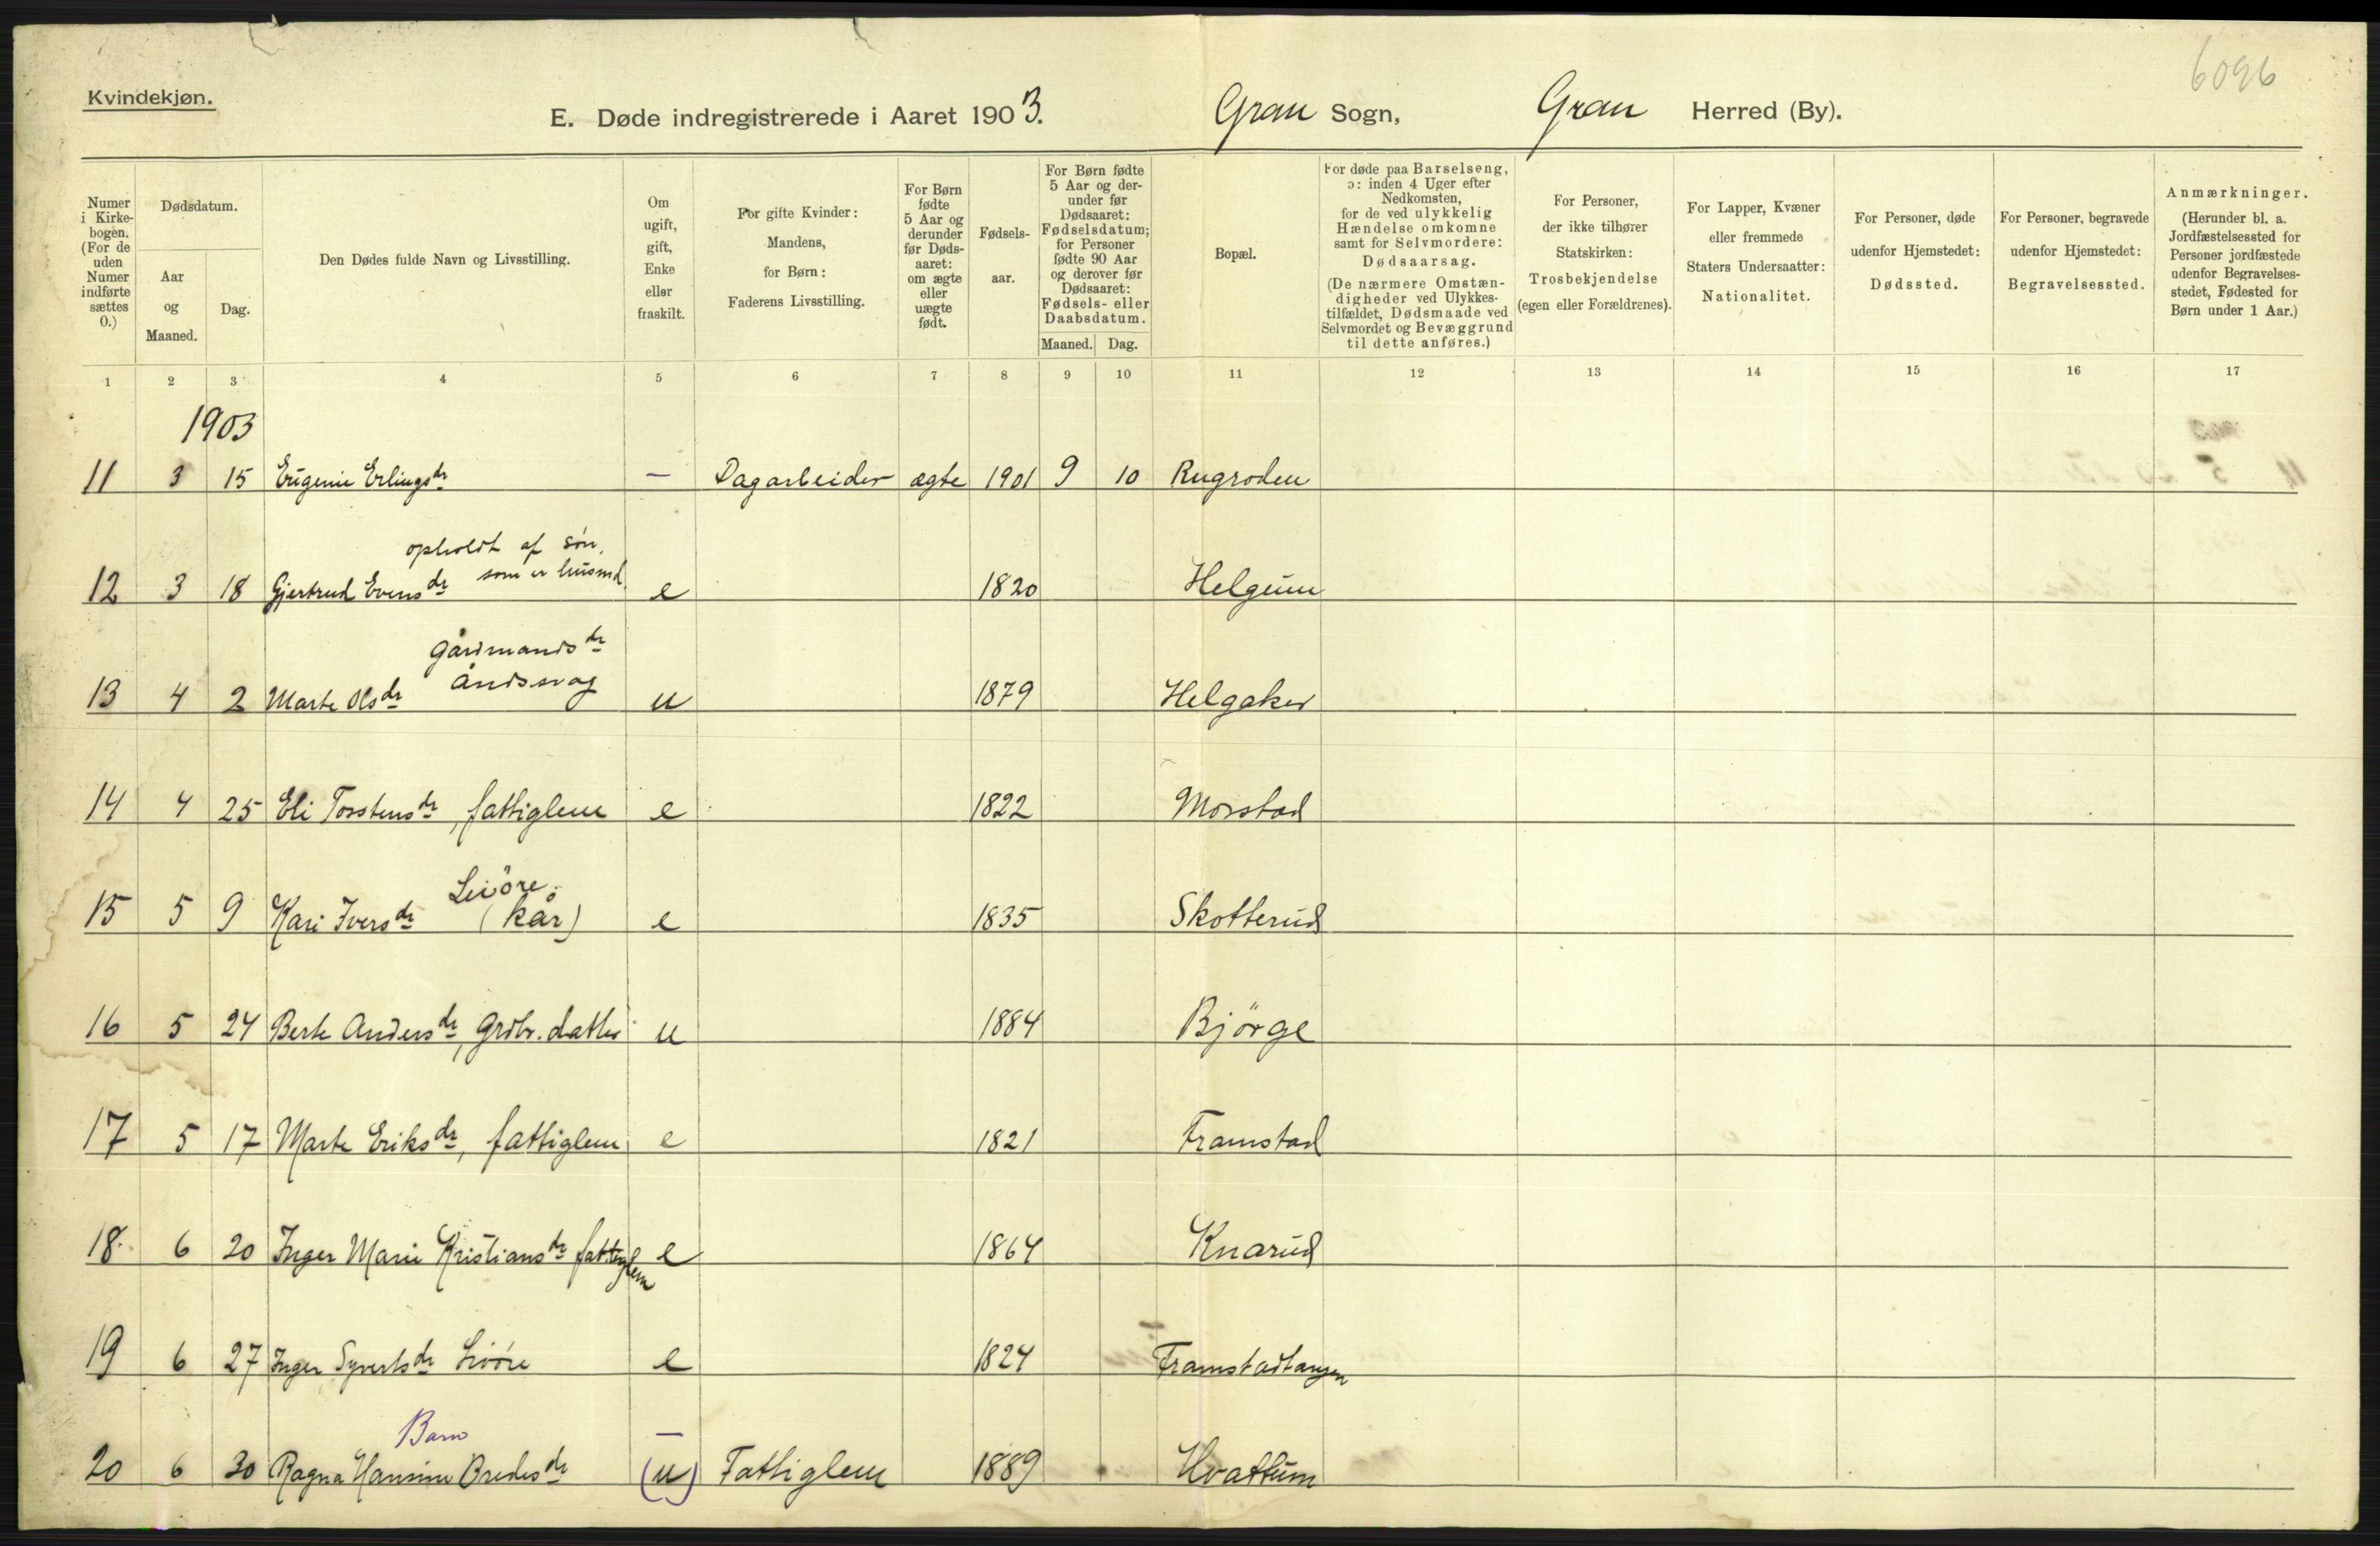 6096
Kvindekjøn.
E. Døde indregistrerede i Aaret 1903. Gran Sogn, Gran Herred (By).
Numer i Kirkebogen. (For de uden Numer indførte sættes 0.)
Dødsdatum.
Aar og Maaned.
Dag.
Den Dødes fulde Navn og Livsstilling.
Om ugift, gift, Enke eller fraskilt.
For gifte Kvinder: Mandens, for Børn: Faderens Livsstilling.
For Børn fødte 5 Aar og derunder før Dødsaaret: om ægte eller uægte født.
Fødselsaar.
For Børn fødte 5 Aar og derunder før Dødsaaret: Fødselsdatum; for Personer fødte 90 Aar og derover før Dødsaaret: Fødsels- eller Daabsdatum.
Maaned. Dag.
Bopæl.
For døde paa Barselseng, ɔ: inden 4 Uger efter Nedkomsten, for de ved ulykkelig Hændelse omkomne samt for Selvmordere: Dødsaarsag. (De nærmere Omstændigheder ved Ulykkestilfældet, Dødsmaade ved Selvmordet og Bevæggrund til dette anføres.)
For Personer, der ikke tilhører Statskirken: Trosbekjendelse (egen eller Forældrenes).
For Lapper, Kvæner eller fremmede Staters Undersaatter: Nationalitet.
For Personer, døde udenfor Hjemstedet: Dødssted.
For Personer, begravede udenfor Hjemstedet: Begravelsessted.
Anmærkninger. (Herunder bl. a. Jordfæstelsessted for Personer jordfæstede udenfor Begravelsesstedet, Fødested for Børn under 1 Aar.)
1 2 3 4 5 6 7 8 9 10 11 12 13 14 15 16 17
1903
11 3 15 Eugenie Erlingsdr — Dagarbeider ægte 1901 9 10 Rugroden
opholdt af søn,
som er husmd.
12 3 18 Gjertrud Evensdr e 1820 Helgum
Gårdmandsdr
åndssvag
13 4 2 Marte Olsdr u 1879 Helgaker
14 4 25 Eli Torstensdr, fattiglem e 1822 Morstad
Livöre.
15 5 9 Kari Iversdr (kår) e 1835 Skotterud
16 5 24 Berte Andersdr, Grdbr. datter u 1884 Björge
17 5 17 Marte Eriksdr, fattiglem e 1821 Framstad
18. 6 20 Inger Marie Kristiansdr fattiglem e 1864 Knarud
19 6 27 Inger Syvertsdr Livöre e 1824 Framstadtangen
Barn —
20 6 30 Ragna Hansine Bredesdr (u) Fattiglem 1889 Hvattum